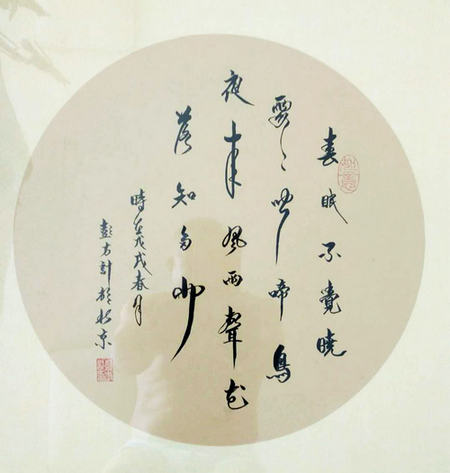 春眠不覺曉
處々聞啼鳥
夜来風雨聲花
落知多少
時在戊戌春月
彭方於京